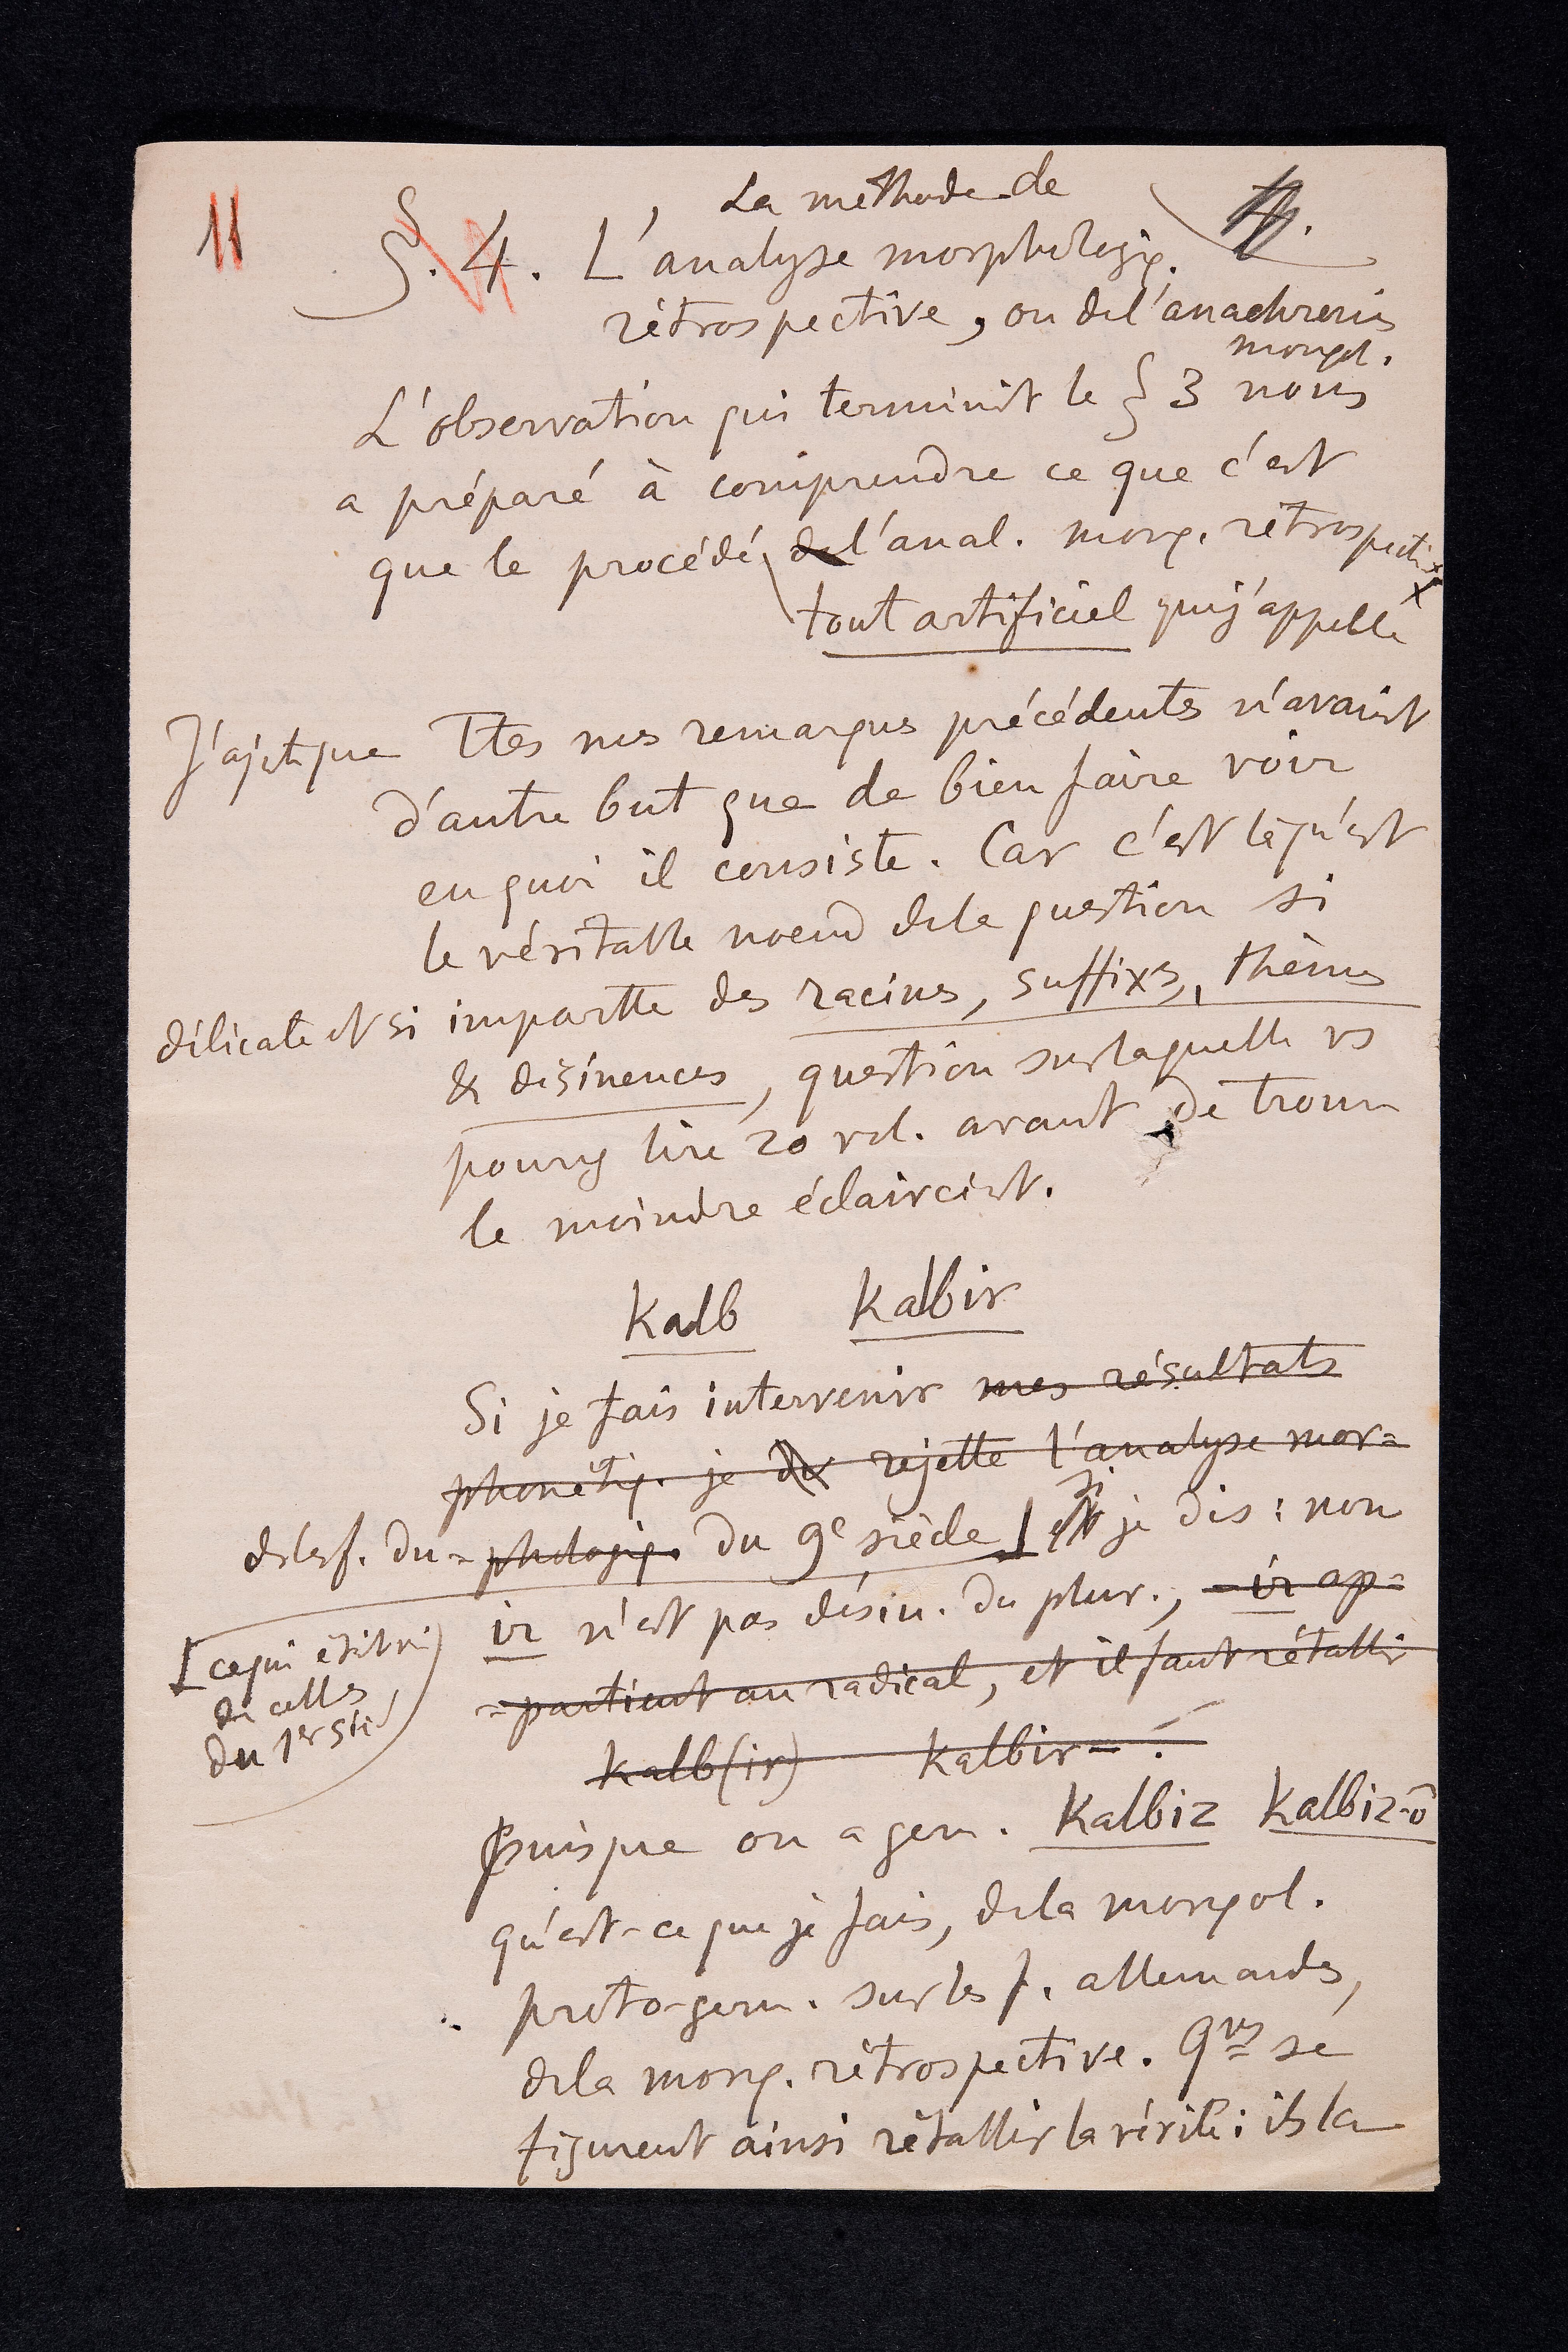 11
La méthode de
§. 4. L'analyse morphologiq.
rétrospective, ou de l'anachronis
morphol.
L'observation qui terminait le § 3 nous
a préparé à comprendre ce que c'est
que le procédé de l'anal. morp. rétrospective
tout artificiel que j'appelle
J'ajoute que Ttes nos remarques précédentes n'avaient
d'autre but que de bien faire voir
en quoi il consiste. Car c'est là qu'est
le véritable noeud de la question si
délicate et si importte des racines, suffixes, thèmes
& désinences, question sur laquelle vs
pourrez lire 20 vol. avant de trouver
le moindre éclaircisst.
Kalb Kalbir
Si je fais intervenir mes résultats
phonétiq. je rejette l'analyse mor=
des f. du =phologiq. du 9e siècle [ si je dis : non
ir n'est pas désin. du plur., -ir ap=
=partient au radical, et il faut rétablir
[ce qui était vrai
de celles
du 1er siè
kalb(ir) kalbir-!
Puisque on a germ. Kalbiz Kalbiz-ō
qu'est-ce que je fais, de la morphol.
proto-germ. sur les f. allemandes,
de la morp. rétrospective. Qques se
figurent ainsi rétablir la vérité: ils la